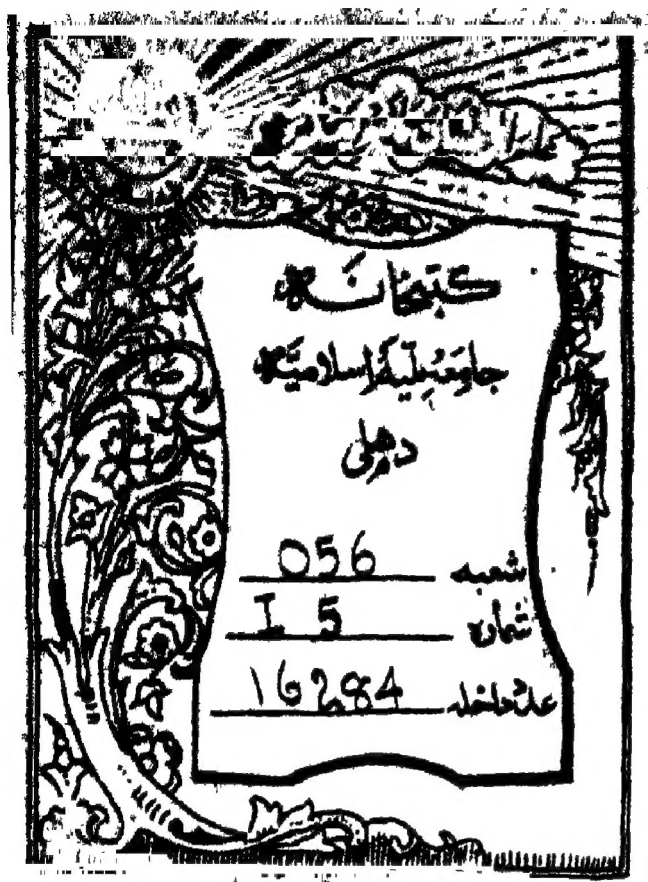 کتبخانہ
جامعہ ملیہ اسلامیہ
دہلی
شعبہ 056
شمارہ I 5
عدد داخلہ 16284